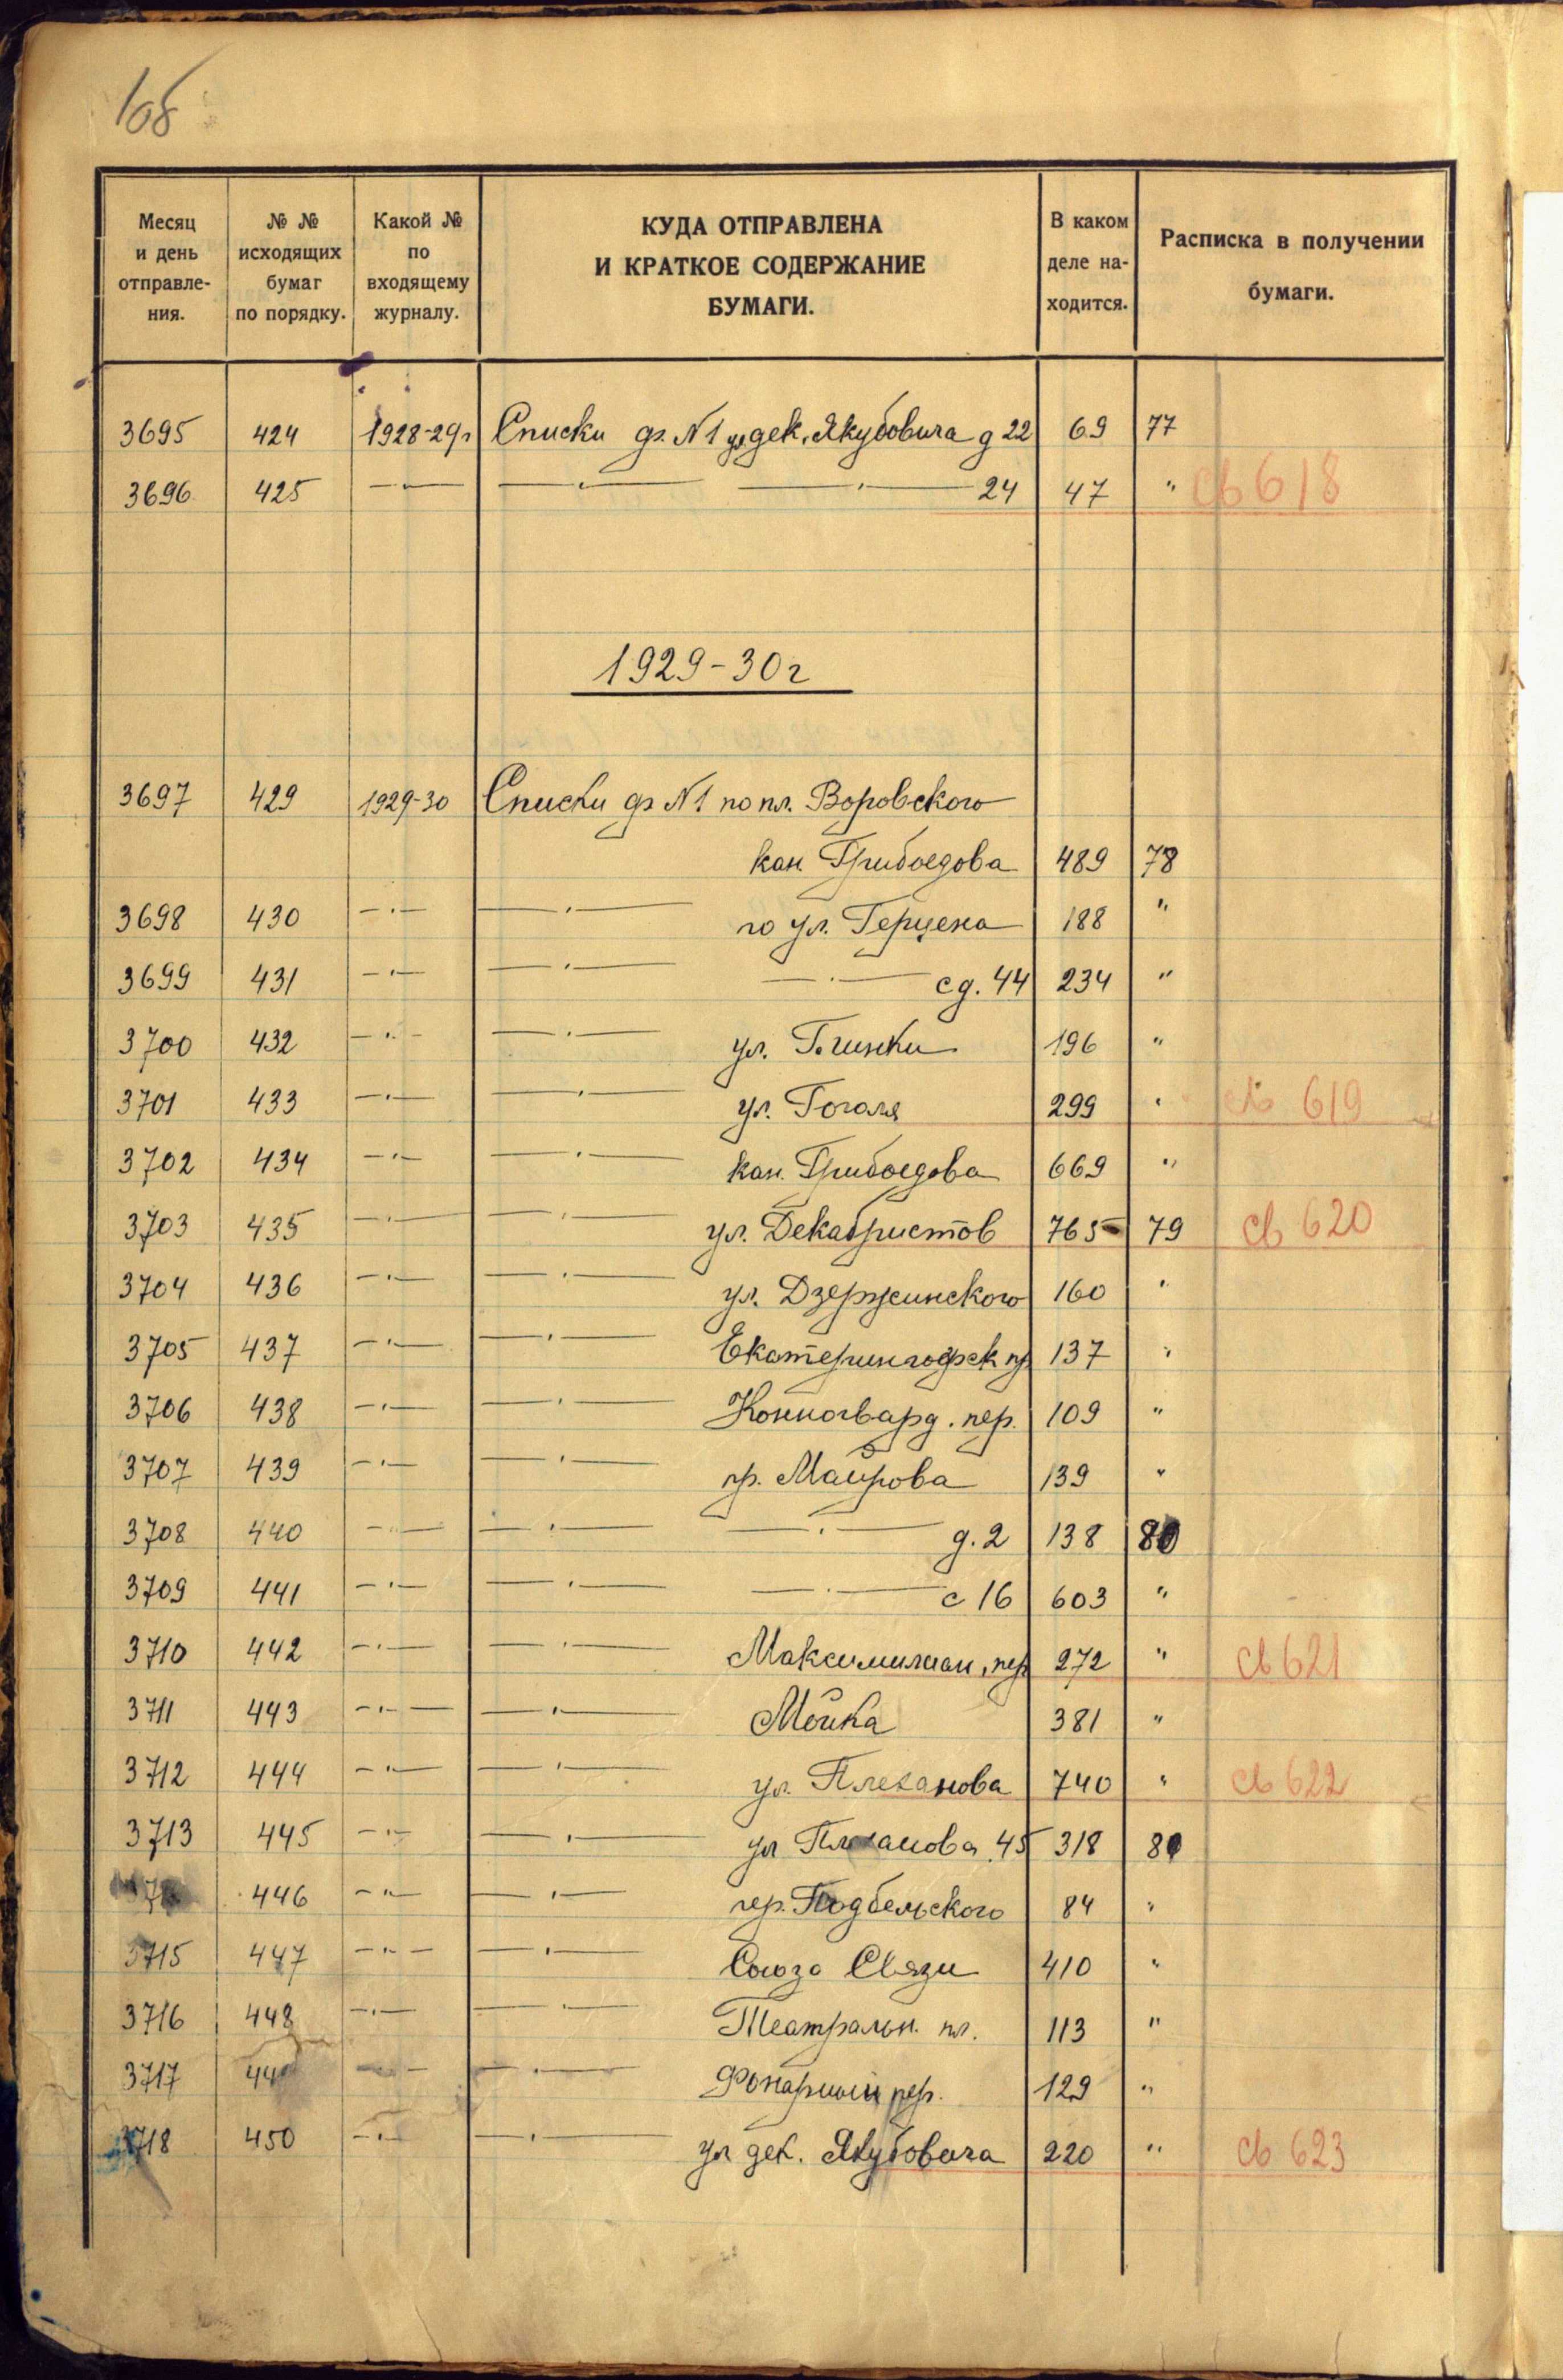 108
Месяц и день отправле- ния. № № исходящих бумаг по порядку. Какой № по входящему журналу. КУДА ОТПРАВЛЕНА И КРАТКОЕ СОДЕРЖАНИЕ БУМАГИ. В каком деле на- ходится. Расписка в получении бумаги.
3695 424 1928-29г Списки ф. №1 ул дек. Якубовича д 22 69 77
3696 425 —"— —"— —"— 24 47 " св 618
1929-30г
3697 429 1929-30 Списки ф №1 по пл. Воровского
кан. Грибоедова 489 78
3698 430 —"— —"— по ул. Герцена 188 "
3699 431 —"— —"— —"— с д. 44 234 "
3700 432 —"— —"— ул. Глинки 196 "
3701 433 —"— —"— ул. Гоголя 299 " св 619
3702 434 —"— —"— кан. Грибоедова 669 "
3703 435 —"— —"— ул. Декабристов 765 79 св 620
3704 436 —"— —"— ул. Дзержинского 160 "
3705 437 —"— —"— Екатерингофск пр 137 "
3706 438 —"— —"— Конногвард. пер. 109 "
3707 439 —"— —"— пр. Майрова 139 "
3708 440 —"— —"— —"— д. 2 138 80
3709 441 —"— —"— —"— с 16 603 "
3710 442 —"— —"— Максимилиан. пер 272 " св 621
3711 443 —"— —"— Мойка 381 "
3712 444 —"— —"— ул. Плеханова 740 " св 622
3713 445 —"— —"— ул Плеханова 45 318 81
446 —"— —"— пер. Подбельского 84 "
3715 447 —"— —"— Союза Связи 410 "
3716 448 —"— —"— Театральн. пл. 113 "
3717 —"— —"— Фонарный пер. 129 "
3718 450 —"— —"— ул дек. Якубовича 220 " св 623